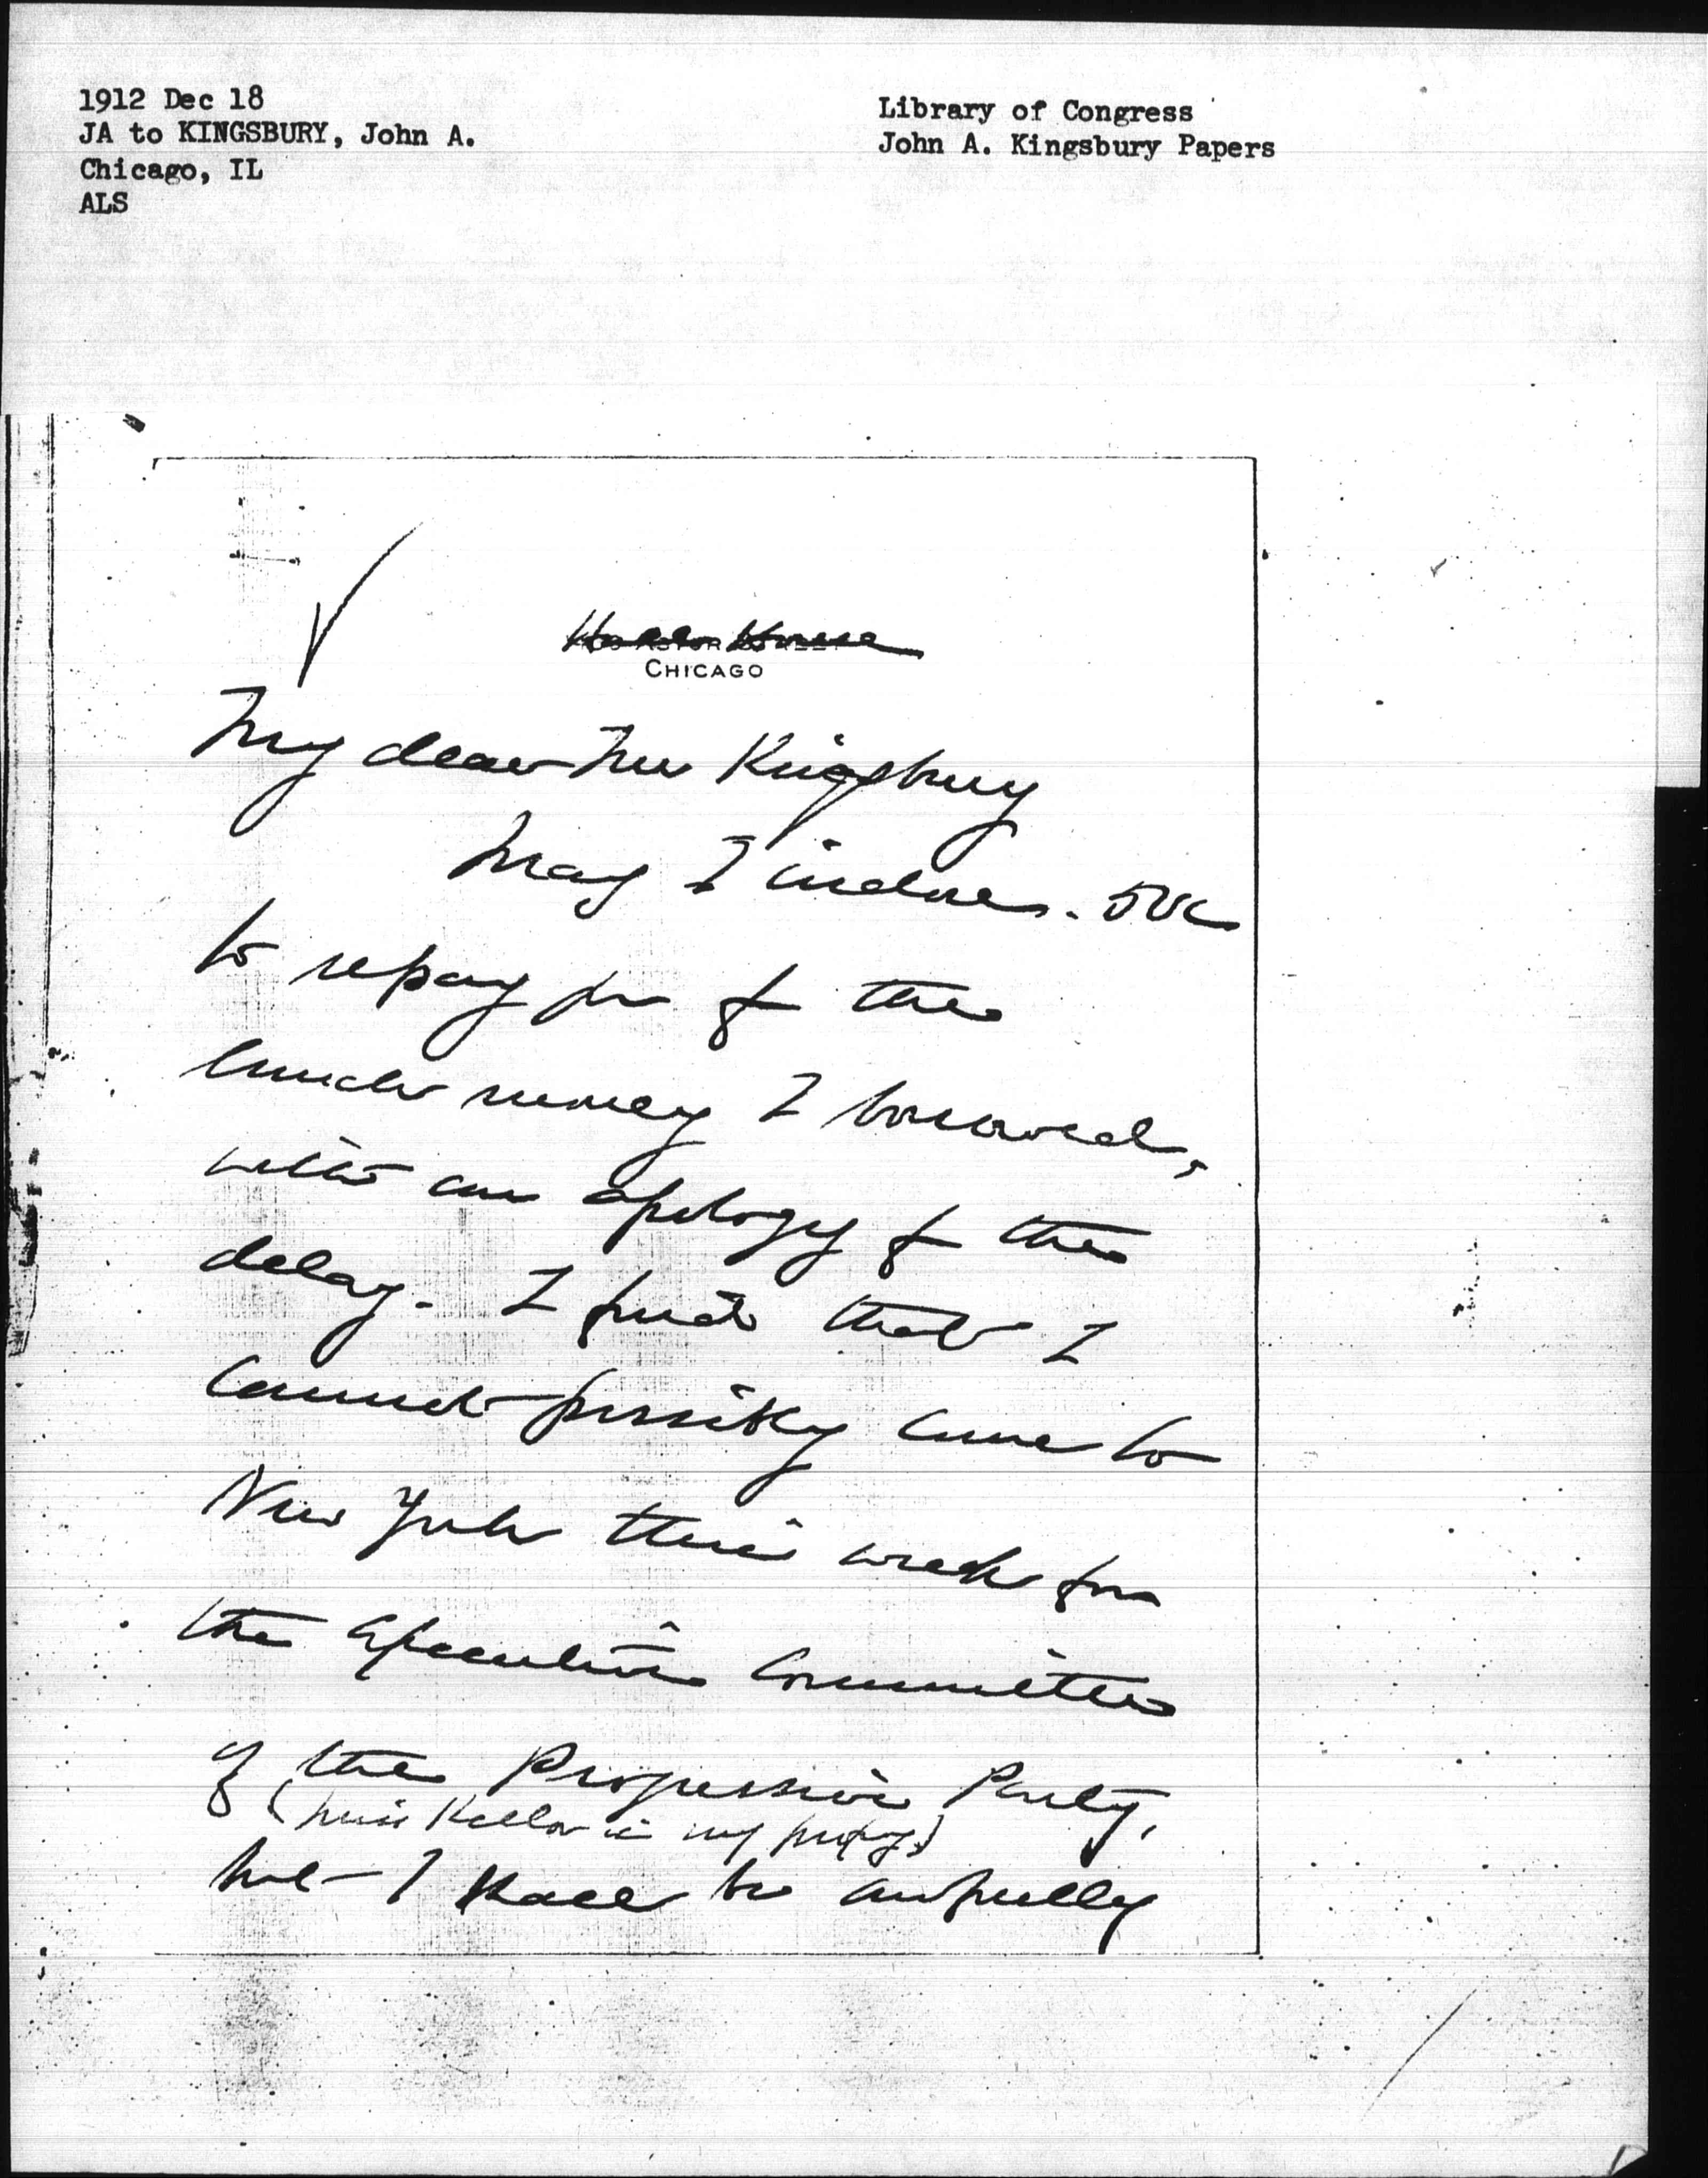 1912 Dec 18
JA to KINGSBURY, John A.
Chicago, IL
ALS
Library of Congress
John A. Kingsbury Papers
Hull House
CHICAGO
My dear Mr Kingsbury
May I inclose 50c
to repay for the
lunch money I borrowed,
with an apology for the
delay. I find that I
cannot possibly come to
New York this week for
the Executive Committee
of the Progressive Party,
(Miss Kellor is my proxy)
but I shall be awfully